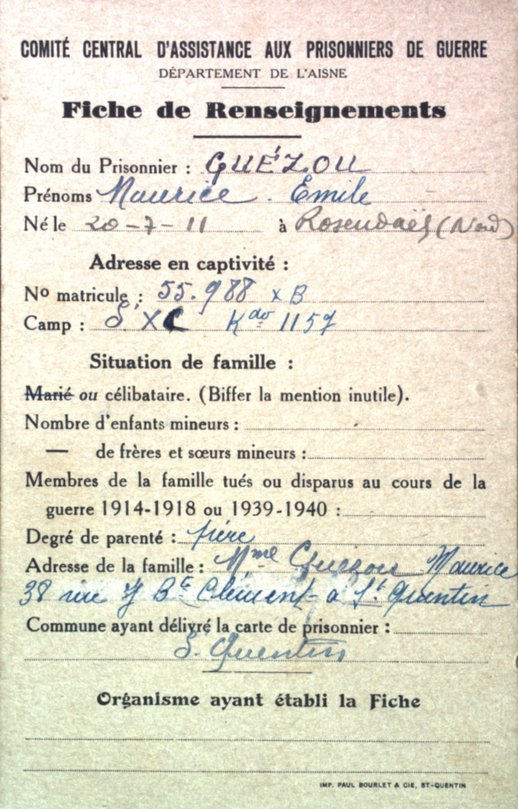 COMITÉ CENTRAL D'ASSISTANCE AUX PRISONNIERS DE GUERRE
DÉPARTEMENT DE L'AISNE
Fiche de Renseignements
Nom du Prisonnier : GUÉZOU
Prénoms Maurice. Émile
Né le 20-7-11 à Rosendaël (Nord)
Adresse en captivité :
No matricule : 55.988 x B
Camp : S. X C Kdo 1157
Situation de famille :
Marié ou célibataire. (Biffer la mention inutile).
Nombre d'enfants mineurs :
— de frères et sœurs mineurs :
Membres de la famille tués ou disparus au cours de la
guerre 1914-1918 ou 1939-1940 :
Degré de parenté :
Adresse de la famille : Mme Guézou Maurice
38 rue J Bte Clément à St Quentin
Commune ayant délivré la carte de prisonnier :
S. Quentin
Organisme ayant établi la Fiche
IMP. PAUL BOURLET & CIE, ST-QUENTIN